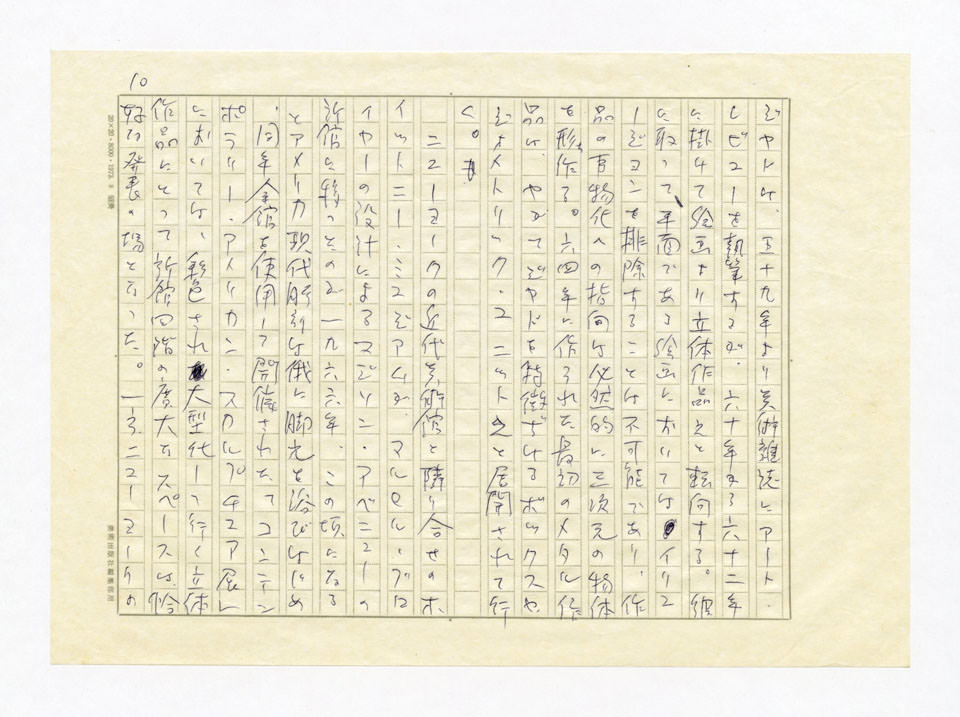 10
ジャドは、五十九年より美術雑誌にアート・
レビューを執筆するが、六十年から六十二年
に掛けて絵画より立体作品えと転向する。彼
に取って、平面である絵画においてはイリュ
ージョンを排除することは不可能であり、作
品の有物化への指向は必然的に三次元の物体
を形作る。六四年に作られた最初のメタル作
品は、やがてジャドを特徴ずけるボックスや
ジオメトリック・ユニットえと展開されて行
く。
ニューヨークの近代美術館と隣り合せのホ
イットニー・ミュジアムが、マルセル・ブロ
イヤーの設計によるマジソン・アベニューの
新館に移ったのが一九六六年、この頃になる
とアメリカ現代彫刻は俄に脚光を浴びはじめ
、同年全館を使用して開催された、コンテン
ポラリー・アメリカン・スカルプチュア展レ
においては、彩色され大型化して行く立体
作品にとって新館四階の広大なスペースは、恰
好の発表の場となった。一方、ニューヨークの
20×20